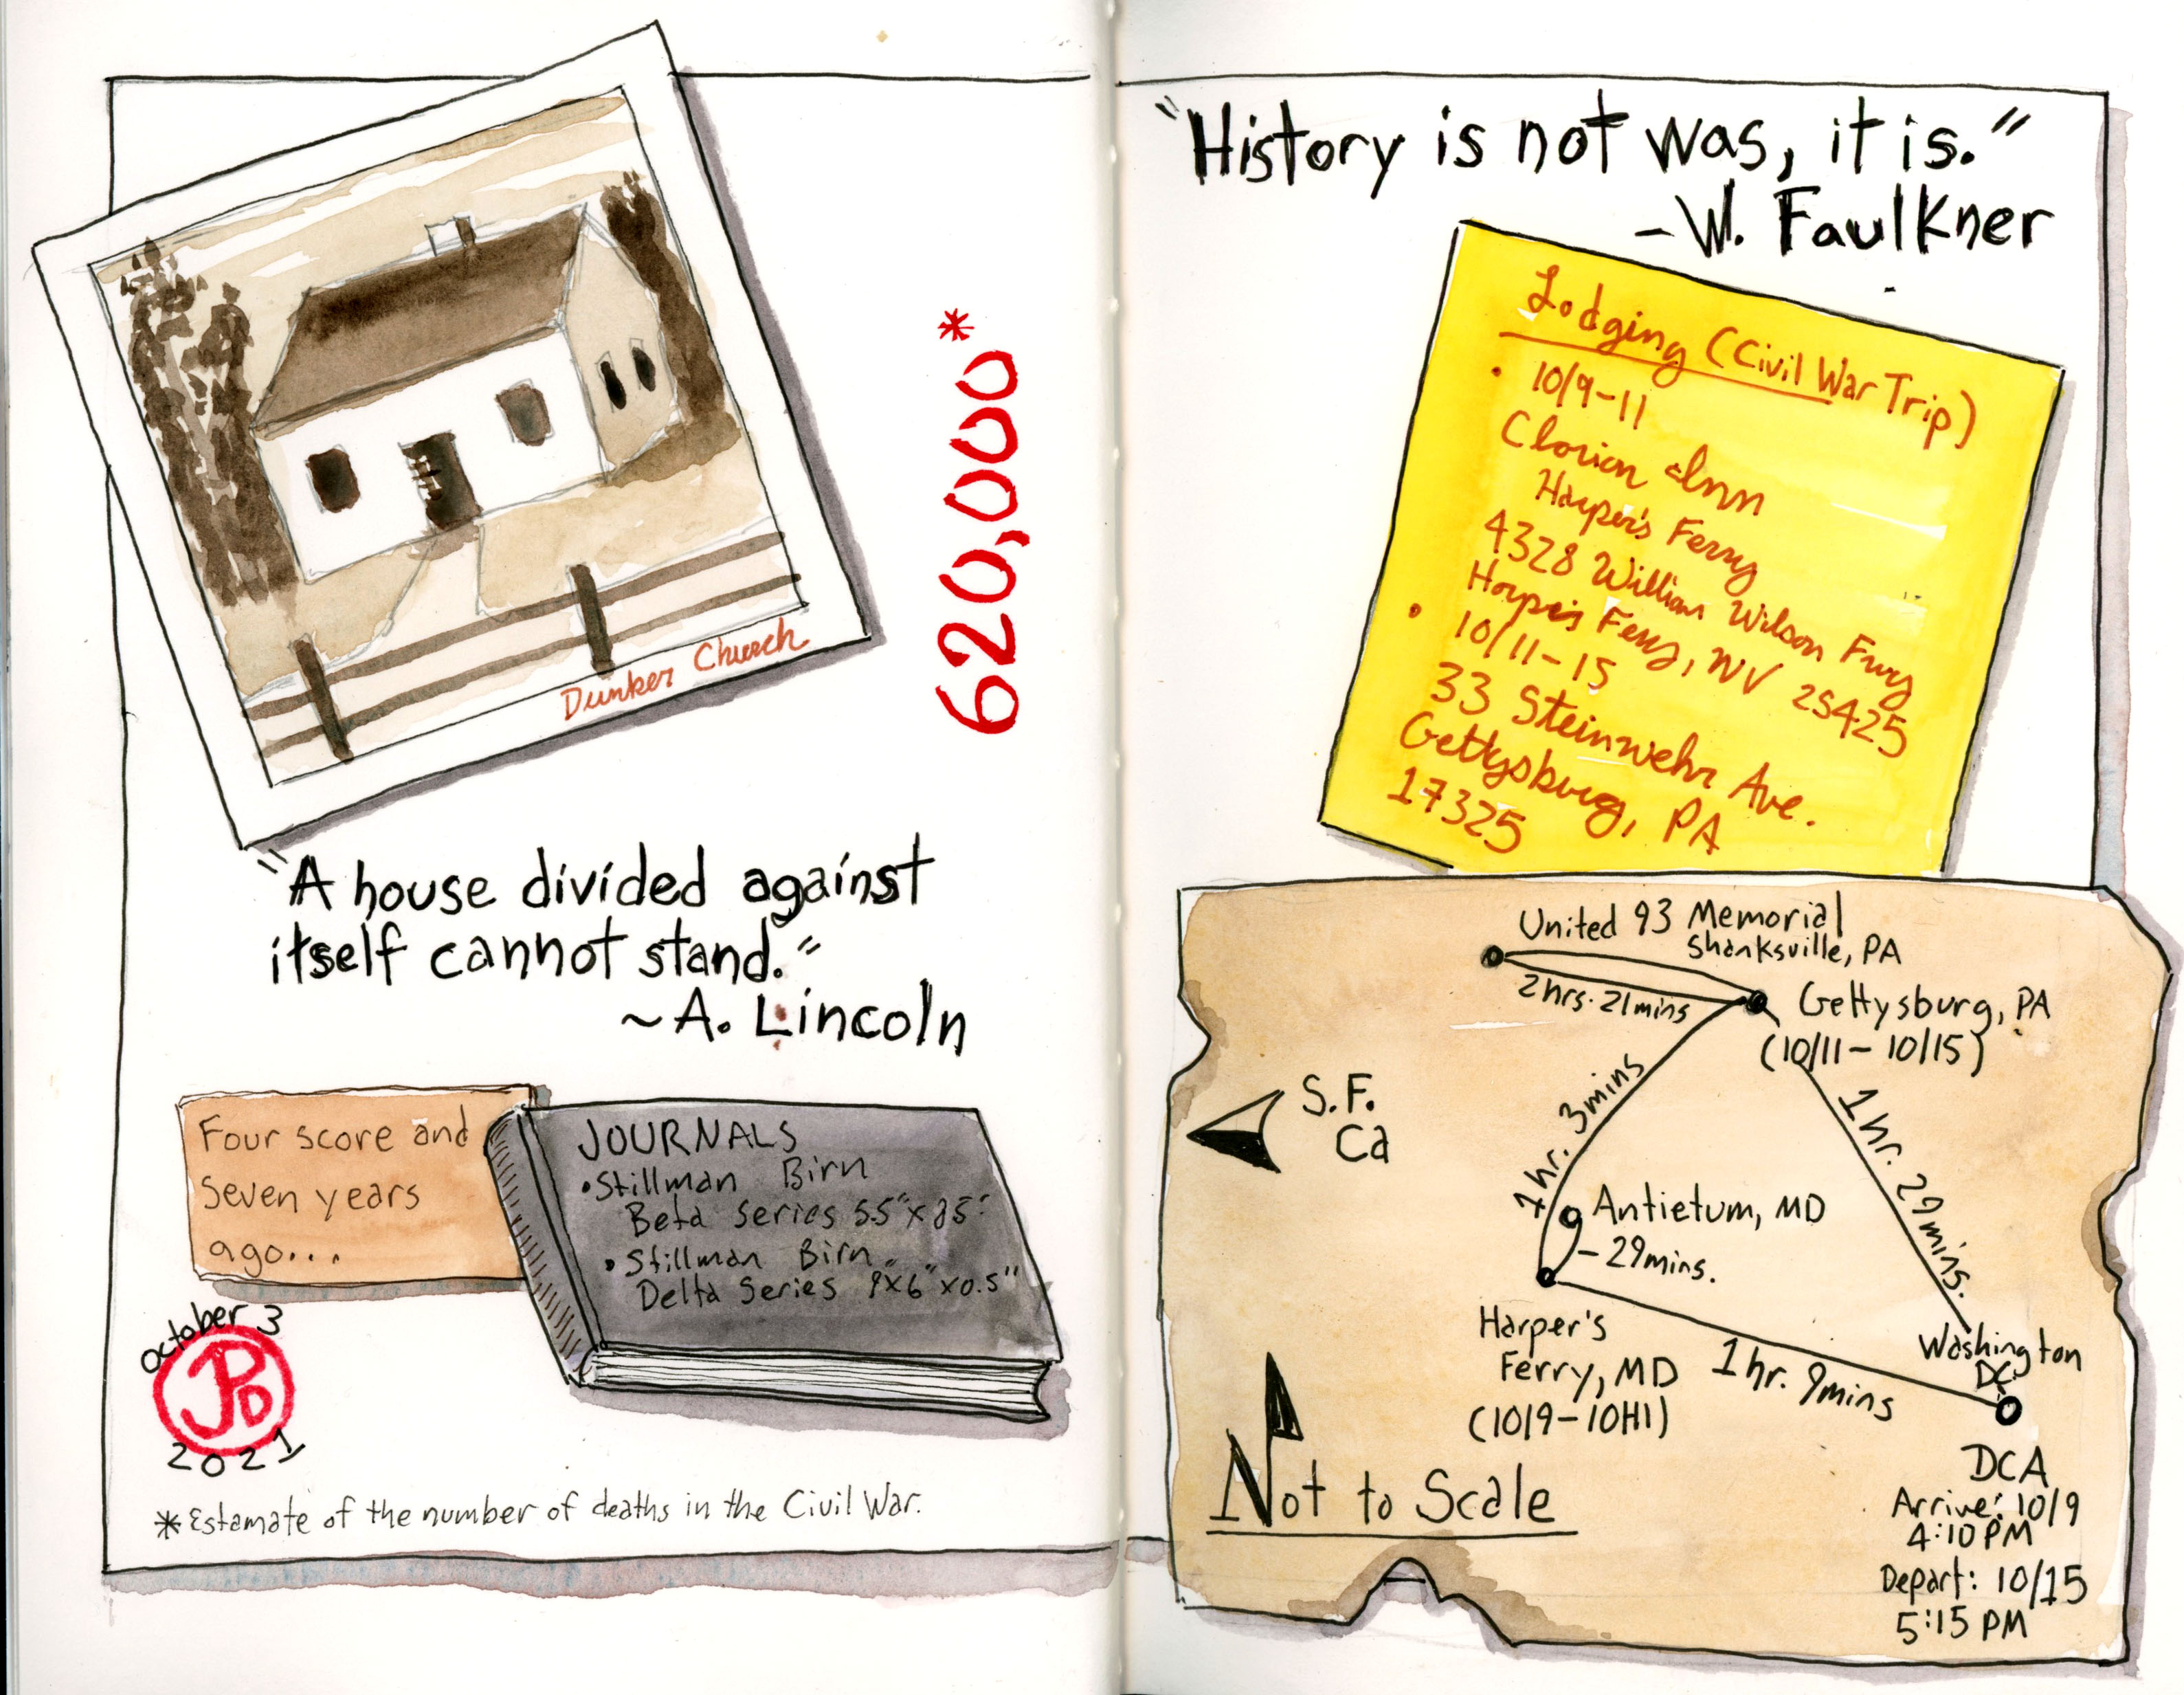 Dunker Church
620,000*
"A house divided against
itself cannot stand."
~A. Lincoln
Four score and
seven years
ago...
JOURNALS
•Stillman Birn
Beta Series 5.5"x8.5"
•Stillman Birn
Delta Series 9x6"x0.5"
October 3
JPD
2021
*Estamate of the number of deaths in the Civil War.
"History is not was, it is."
-W. Faulkner
Lodging (Civil War Trip)
• 10/9-11
Clarion Inn
Harper's Ferry
4328 William Wilson Frwy
Harper's Ferry, WV 25425
• 10/11-15
33 Steinwehr Ave.
Gettysburg, PA
17325
United 93 Memorial
Shanksville, PA
2hrs. 21mins
Gettysburg, PA
(10/11-10/15)
S.F.
Ca
1hr. 3mins
1hr. 29mins.
Antietum, MD
-29mins.
Harper's
Ferry, MD
(10/9-10/11)
1hr. 9mins
Washington
DC
Not to Scale
DCA
Arrive: 10/9
4:10PM
Depart: 10/15
5:15 PM